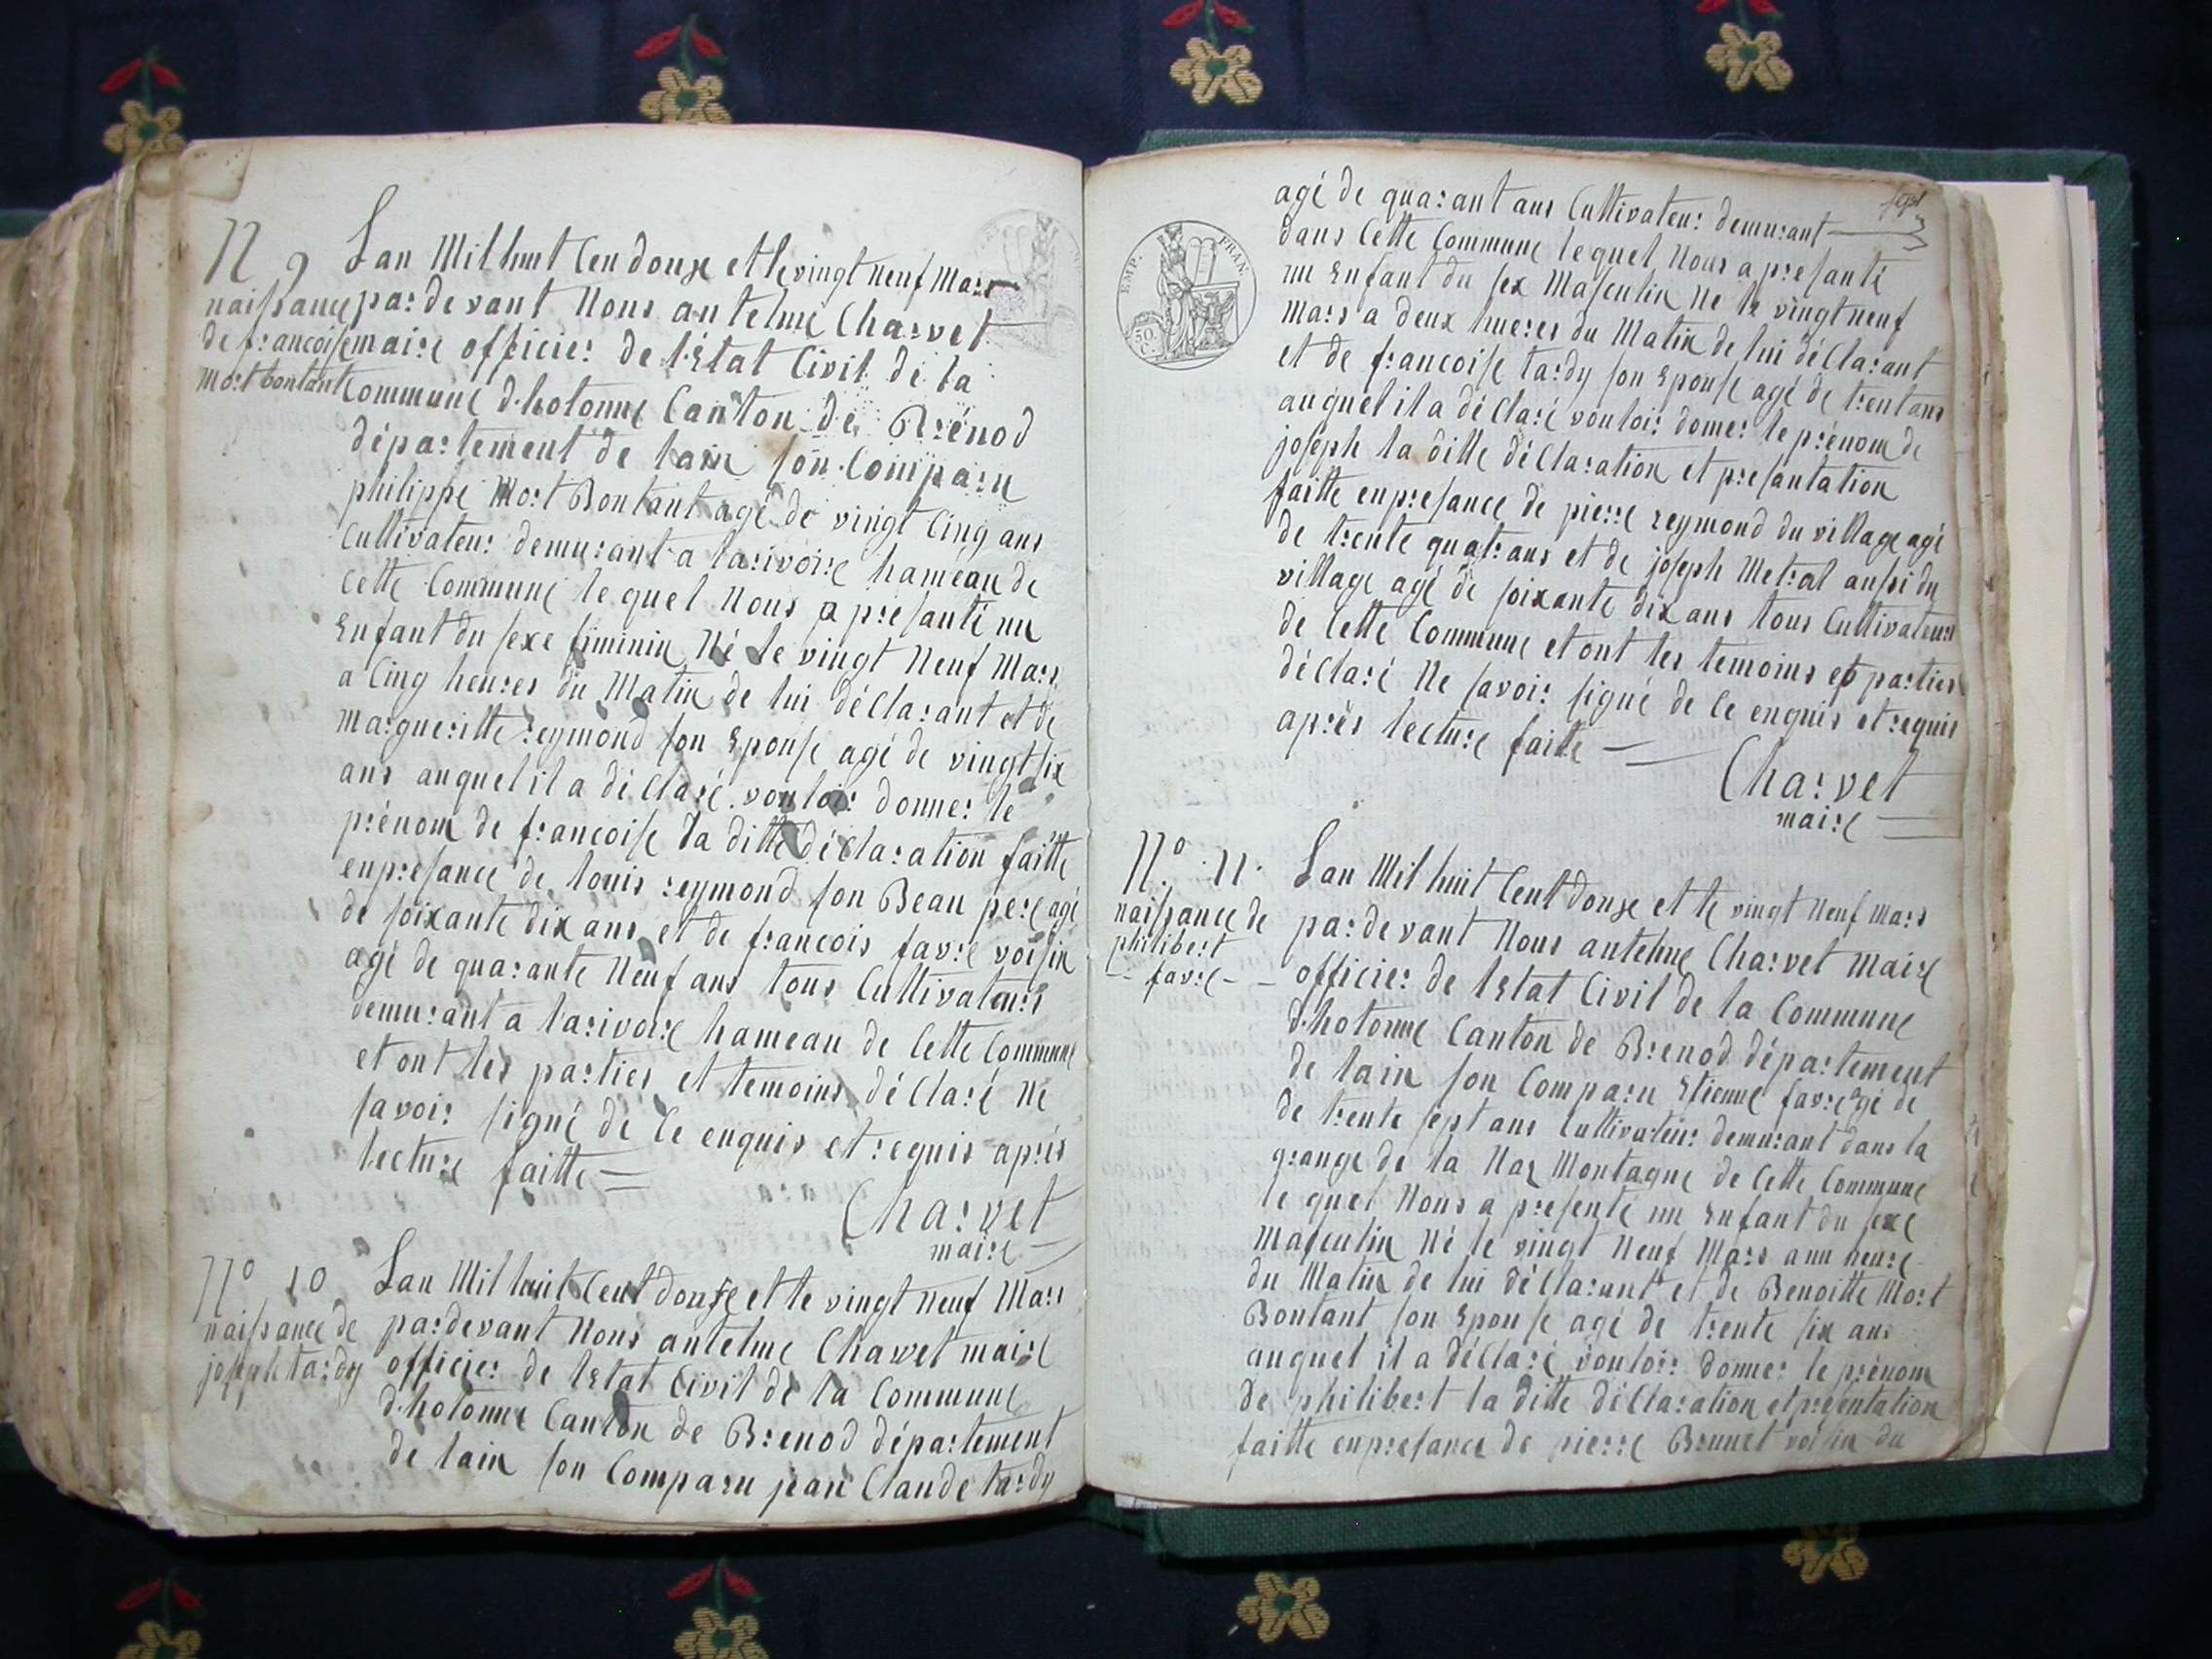 N 9
naissance
de francoise
mort bontant
Lan Mil huit Cen douze et le vingt neuf Mars
par devant Nous antelme Charvet
maire officier de l'Etat Civil de la
Commune d'hotonne Canton de Brénod
département de lain son Comparu
philippe Mort Bontant agé de vingt Cinq ans
Cultivateur demurant a larivoire hameau de
Cette Commune le quel Nous a presanté un
Enfant du sexe fiminin Né le vingt Neuf Mars
a Cinq heures du Matin de lui déclarant et de
Margueritte reymond son Epouse agé de vingt six
ans auquel il a déclaré vouloir donner le
prénom de francoise la ditte déclaration faitte
enpresance de louis reymond son Beau pere agé
de soixante dix ans et de francois favre voisin
agé de quarante Neuf ans tous Cultivateurs
demurant a larivoire hameau de Cette Commune
et ont les parties et temoins déClaré Ne
savoir signé de Ce enquis et requis après
lecture faitte
Charvet
maire
N° 10
naissance de
joseph tardy
Lan Mil huit Cent douze et le vingt neuf Mars
pardevant Nous antelme Charvet maire
officier de lEtat Civil de la Commune
d'hotonne Canton de Brenod département
de lain son Comparu jean Claude tardy
sept
agé de quarant ans Cultivateur demurant
dans Cette Commune lequel Nous a presanté
un Enfant du sex Masculin Né le vingt neuf
Mars a deux hueres du Matin de lui déClarant
et de francoise tardy son Epouse agé de trent ans
auquel il a déClaré vouloir donner le prénom de
joseph la ditte déClaration et presantation
faitte enpresance de pierre reymond du village agé
de trente quatr ans et de joseph Metral aussi du
village agé de soixante dix ans tous Cultivateurs
de Cette Commune et ont les temoins et parties
déClaré Ne savoir signé de Ce enquis et requis
après lecture faitte
Charvet
maire
EMP. FRAN.
50 C.
N° 11
naissance de
philibert
favre
Lan Mil huit Cent douze et le vingt Neuf Mars
par devant Nous antelme Charvet Maire
officier de lEtat Civil de la Commune
d'hotonne Canton de Brenod département
de lain son Comparu Etienne favre agé de
de trente sept ans Cultivateur demurant dans la
grange de la Naz Montagne de Cette Commune
le quel Nous a presenté un Enfant du sexe
Masculin Né le vingt Neuf Mars a un heure
du Matin de lui déClarant et de Benoitte Mort
Bontant son Epouse agé de trente six ans
auquel il a déClaré vouloir donner le prénom
de philibert la ditte déClaration et presentation
faitte enpresance de pierre Brunet voisin du